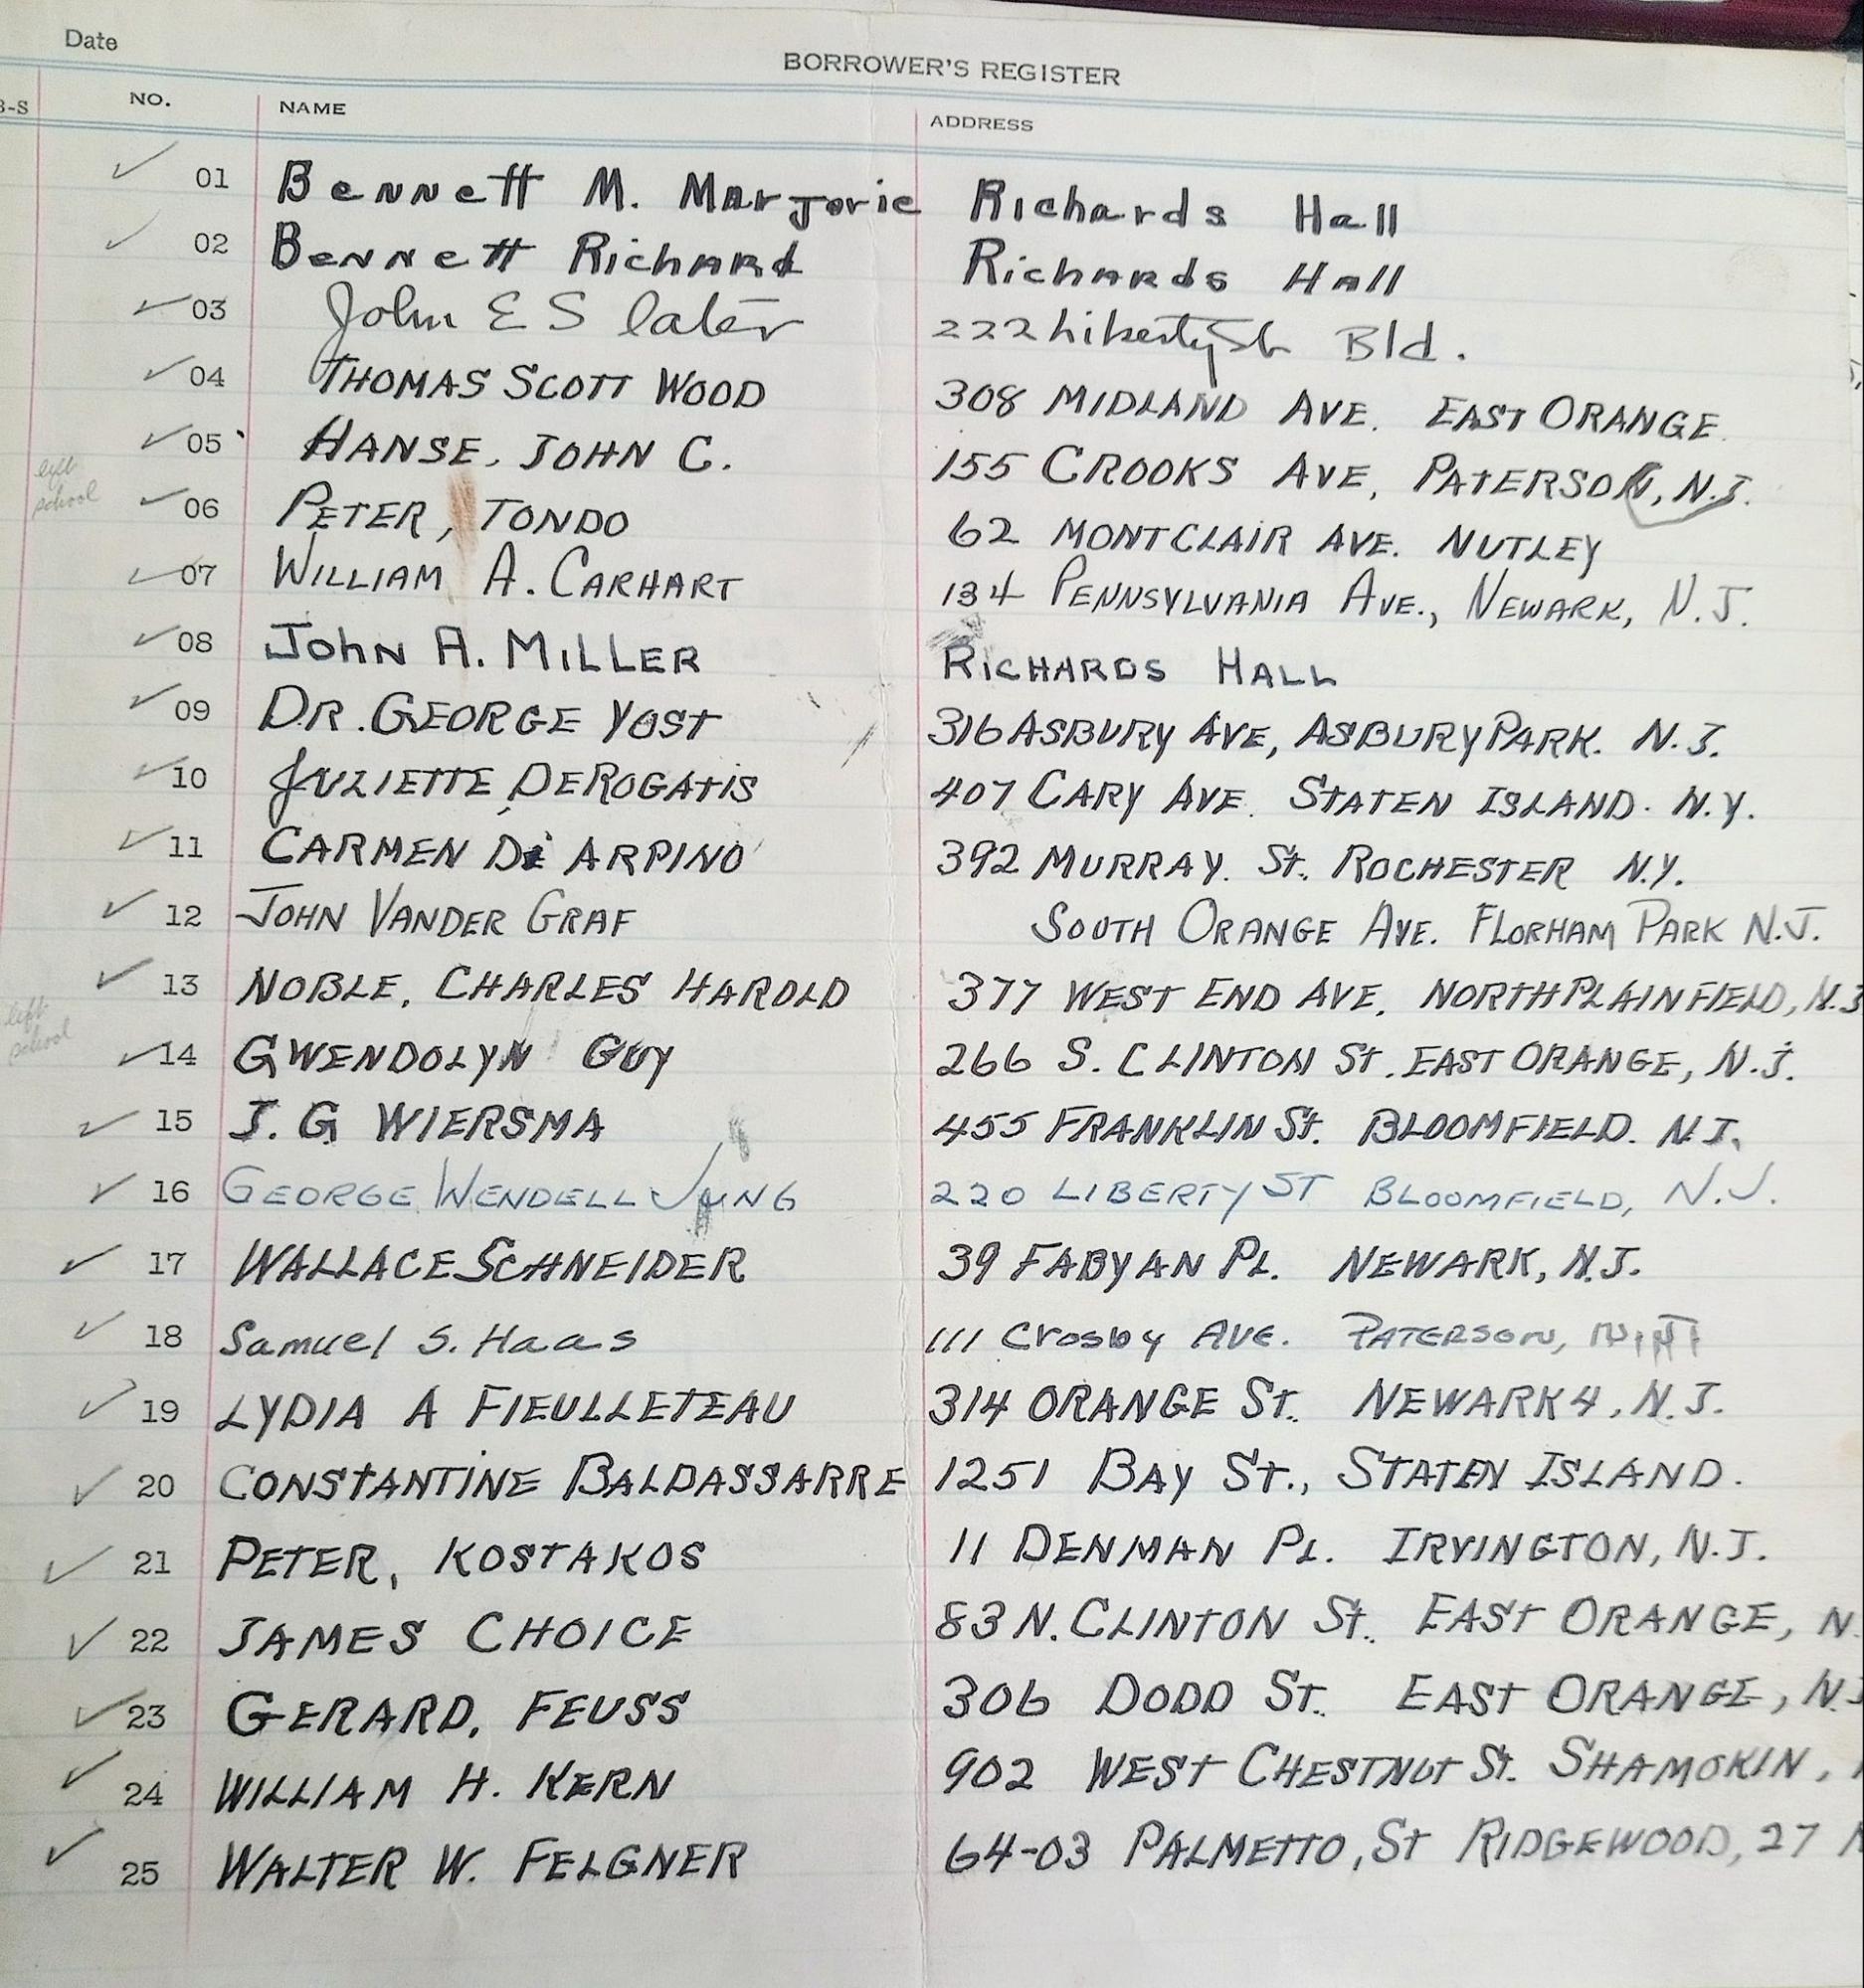 Date
BORROWER'S REGISTER
B-S NO. NAME ADDRESS
01 Bennett M. Marjorie Richards Hall
02 Bennett Richard Richards Hall
03 John E Slater 222 Liberty St Bld.
04 THOMAS SCOTT WOOD 308 MIDLAND AVE. EAST ORANGE
05 HANSE, JOHN C. 155 CROOKS AVE, PATERSON, N.J.
left school 06 PETER, TONDO 62 MONTCLAIR AVE. NUTLEY
07 WILLIAM A. CARHART 134 PENNSYLVANIA AVE., NEWARK, N.J.
08 JOHN A. MILLER RICHARDS HALL
09 DR. GEORGE YOST 316 ASBURY AVE, ASBURY PARK. N.J.
10 JULIETTE DEROGATIS 407 CARY AVE. STATEN ISLAND. N.Y.
11 CARMEN Di ARPINO 392 MURRAY. St. ROCHESTER N.Y.
12 JOHN VANDER GRAF SOUTH ORANGE AVE. FLORHAM PARK N.J.
13 NOBLE, CHARLES HAROLD 377 WEST END AVE. NORTH PLAINFIELD, N.J
left school 14 GWENDOLYN GUY 266 S. CLINTON St. EAST ORANGE, N.J.
15 J. G WIERSMA 455 FRANKLIN St. BLOOMFIELD. N.J.
16 GEORGE WENDELL JUNG 220 LIBERTY ST BLOOMFIELD, N.J.
17 WALLACE SCHNEIDER 39 FABYAN PL. NEWARK, N.J.
18 Samuel S. Haas 111 Crosby AVE. PATERSON, N.J.
19 LYDIA A FIEULLETEAU 314 ORANGE St. NEWARK 4, N.J.
20 CONSTANTINE BALDASSARRE 1251 BAY ST., STATEN ISLAND.
21 PETER, KOSTAKOS 11 DENMAN PL. IRVINGTON, N.J.
22 JAMES CHOICE 83 N. CLINTON St. EAST ORANGE, N.
23 GERARD, FEUSS 306 DODD ST. EAST ORANGE, N.J
24 WILLIAM H. KERN 902 WEST CHESTNUT St. SHAMOKIN,
25 WALTER W. FELGNER 64-03 PALMETTO, St RIDGEWOOD, 27 N